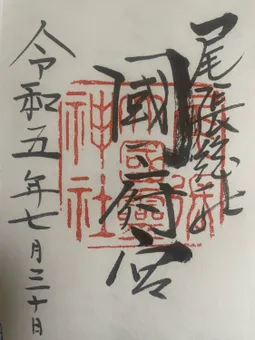 尾張總社
國府宮
令和五年七月三十日
尾張大國霊神社